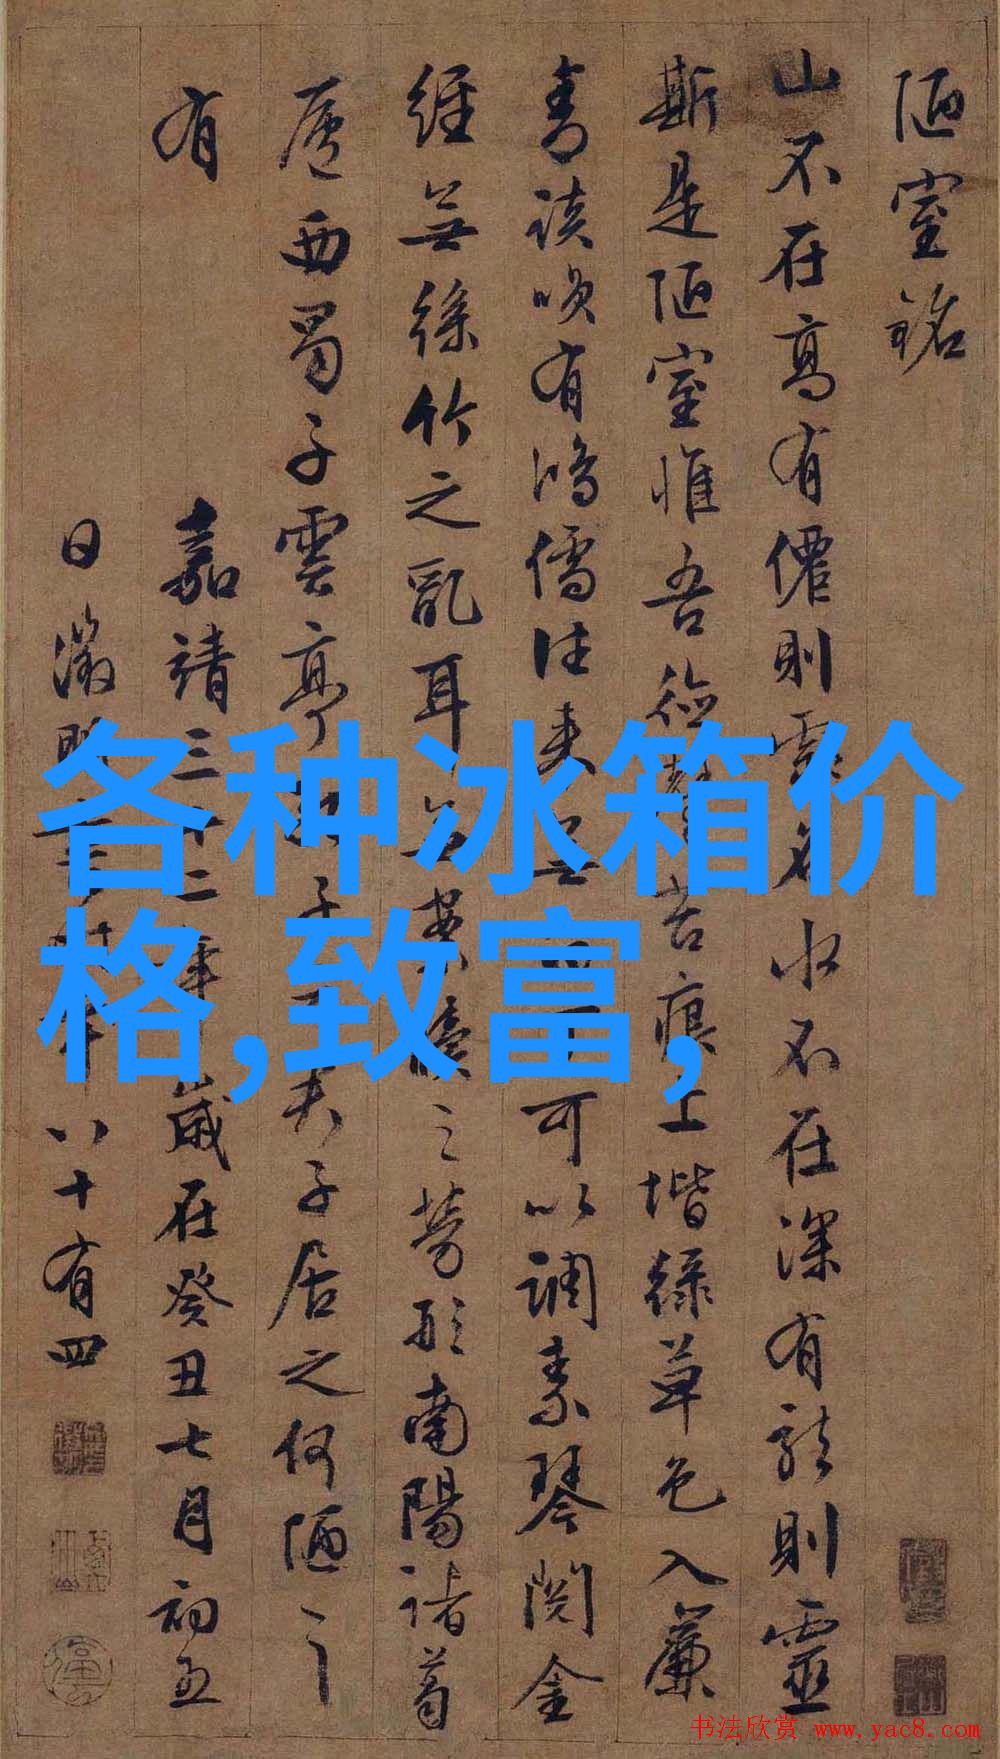 陋室銘
山不在高有僊則靈名水不在深有龍則靈
斯是陋室惟吾德馨苔痕上堦緑草色入簾
青談咲有鴻儒往来無白丁可以調素琴閲金
經無絲竹之亂耳無案牘之勞形南陽諸葛
廬西蜀子雲亭子夫子居之何陋之
有
嘉靖三十二年歲在癸丑七月初五
日徵明時年八十有四
各种冰箱价
格,致富,
书法欣赏 www.yac8.com